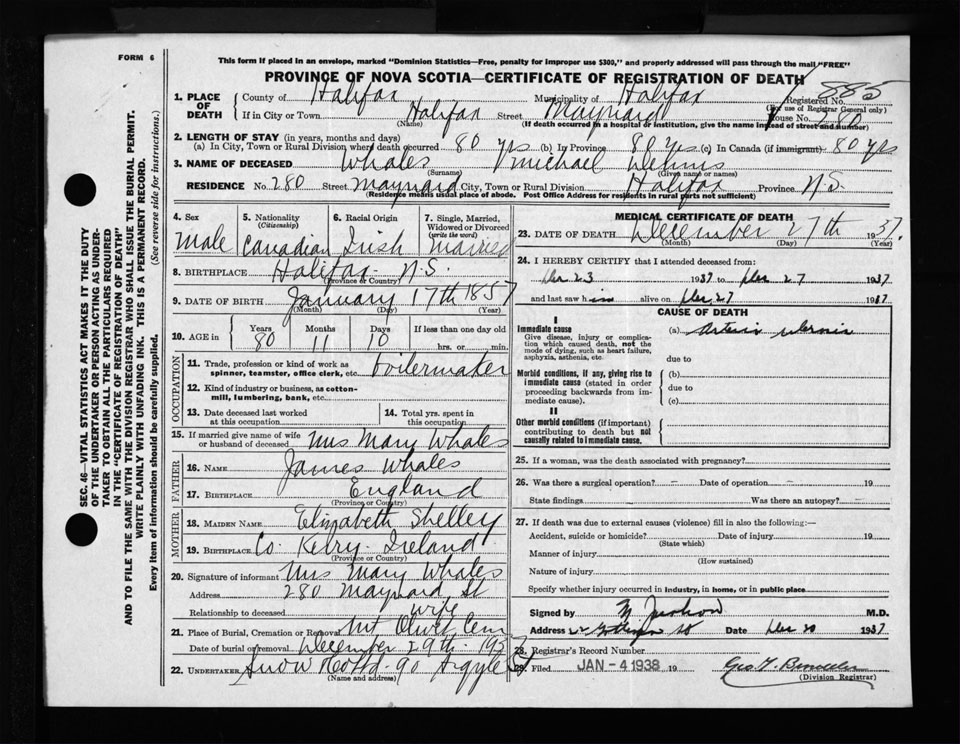 FORM 6
This form if placed in an envelope, marked "Dominion Statistics—Free, penalty for improper use $300," and properly addressed will pass through the mail "FREE"
PROVINCE OF NOVA SCOTIA—CERTIFICATE OF REGISTRATION OF DEATH
SEC. 46—VITAL STATISTICS ACT MAKES IT THE DUTY
OF THE UNDERTAKER OR PERSON ACTING AS UNDER-
TAKER TO OBTAIN ALL THE PARTICULARS REQUIRED
IN THE "CERTIFICATE OF REGISTRATION OF DEATH"
AND TO FILE THE SAME WITH THE DIVISION REGISTRAR WHO SHALL ISSUE THE BURIAL PERMIT.
WRITE PLAINLY WITH UNFADING INK. THIS IS A PERMANENT RECORD.
Every item of information should be carefully supplied. (See reverse side for instructions.)
1. PLACE OF DEATH
County of Halifax Municipality of Halifax Registered No. 885
(For use of Registrar General only)
If in City or Town Halifax Street Maynard House No. 280
(Name) (If death occurred in a hospital or institution, give the name instead of street and number)
2. LENGTH OF STAY (in years, months and days)
(a) In City, Town or Rural Division where death occurred 80 yrs (b) In Province 80 yrs (c) In Canada (if immigrant) 80 yrs
3. NAME OF DECEASED Whales Michael Dennis
(Surname) (Given name or names)
RESIDENCE No. 280 Street Maynard City, Town or Rural Division Halifax Province N.S.
(Residence means usual place of abode. Post Office Address for residents in rural parts not sufficient)
4. Sex 5. Nationality (Citizenship) 6. Racial Origin 7. Single, Married, Widowed or Divorced (write the word)
Male Canadian Irish Married
8. BIRTHPLACE Halifax N.S.
(Province or Country)
9. DATE OF BIRTH January 17th 1857
(Month) (Day) (Year)
10. AGE in Years Months Days If less than one day old
80 11 10 hrs. or min.
OCCUPATION
11. Trade, profession or kind of work as spinner, teamster, office clerk, etc. boilermaker
12. Kind of industry or business, as cotton-mill, lumbering, bank, etc.
13. Date deceased last worked at this occupation 14. Total yrs. spent in this occupation
15. If married give name of wife or husband of deceased Mrs Mary Whales
FATHER
16. NAME James Whales
17. BIRTHPLACE England
(Province or Country)
MOTHER
18. MAIDEN NAME Elizabeth Shelley
19. BIRTHPLACE Co. Kerry, Ireland
(Province or Country)
20. Signature of informant Mrs Mary Whales
Address 280 Maynard St
Relationship to deceased wife
21. Place of Burial, Cremation or Removal Mt Olivet Cem
Date of burial or removal December 29th 1937
22. UNDERTAKER Snow & Co Ltd - 90 Argyle St
(Name and address)
MEDICAL CERTIFICATE OF DEATH
23. DATE OF DEATH December 27th 1937.
(Month) (Day) (Year)
24. I HEREBY CERTIFY that I attended deceased from:
Dec 23 1937 to Dec 27 1937
and last saw him alive on Dec 27 1937
CAUSE OF DEATH
I
Immediate cause (a) Arterio sclerosis
Give disease, injury or complication which caused death, not the mode of dying, such as heart failure, asphyxia, asthenia, etc.
due to
Morbid conditions, if any, giving rise to immediate cause (stated in order proceeding backwards from immediate cause).
(b)
due to
(c)
II
Other morbid conditions (if important) contributing to death but not causally related to immediate cause.
25. If a woman, was the death associated with pregnancy?
26. Was there a surgical operation? Date of operation 19
State findings Was there an autopsy?
27. If death was due to external causes (violence) fill in also the following:
Accident, suicide or homicide? Date of injury 19
(State which)
Manner of injury
(How sustained)
Nature of injury
Specify whether injury occurred in industry, in home, or in public place
Signed by M.D.
Address Date Dec 1937
28. Registrar's Record Number
29. Filed JAN - 4 1938 19
(Division Registrar)